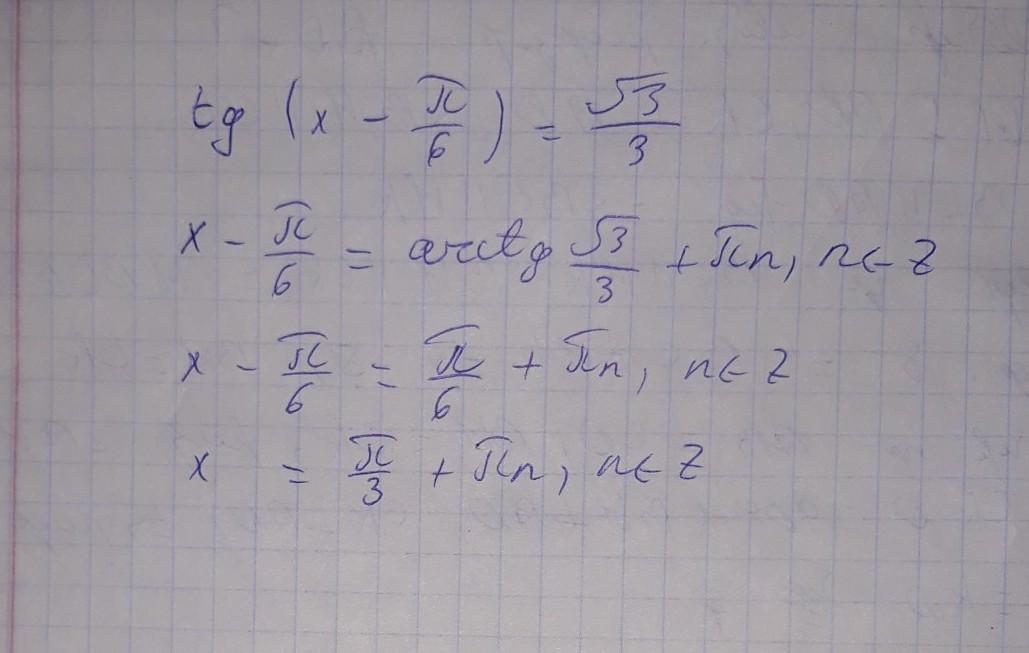 tg (x - π/6) = √3/3
x - π/6 = arctg √3/3 + πn, n ∈ Z
x - π/6 = π/6 + πn, n ∈ Z
x = π/3 + πn, n ∈ Z